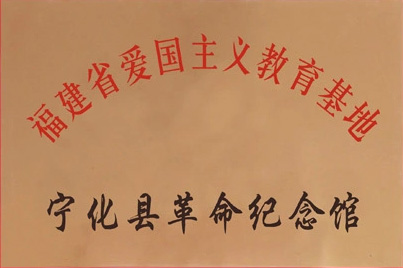 福建省爱国主义教育基地
宁化县革命纪念馆